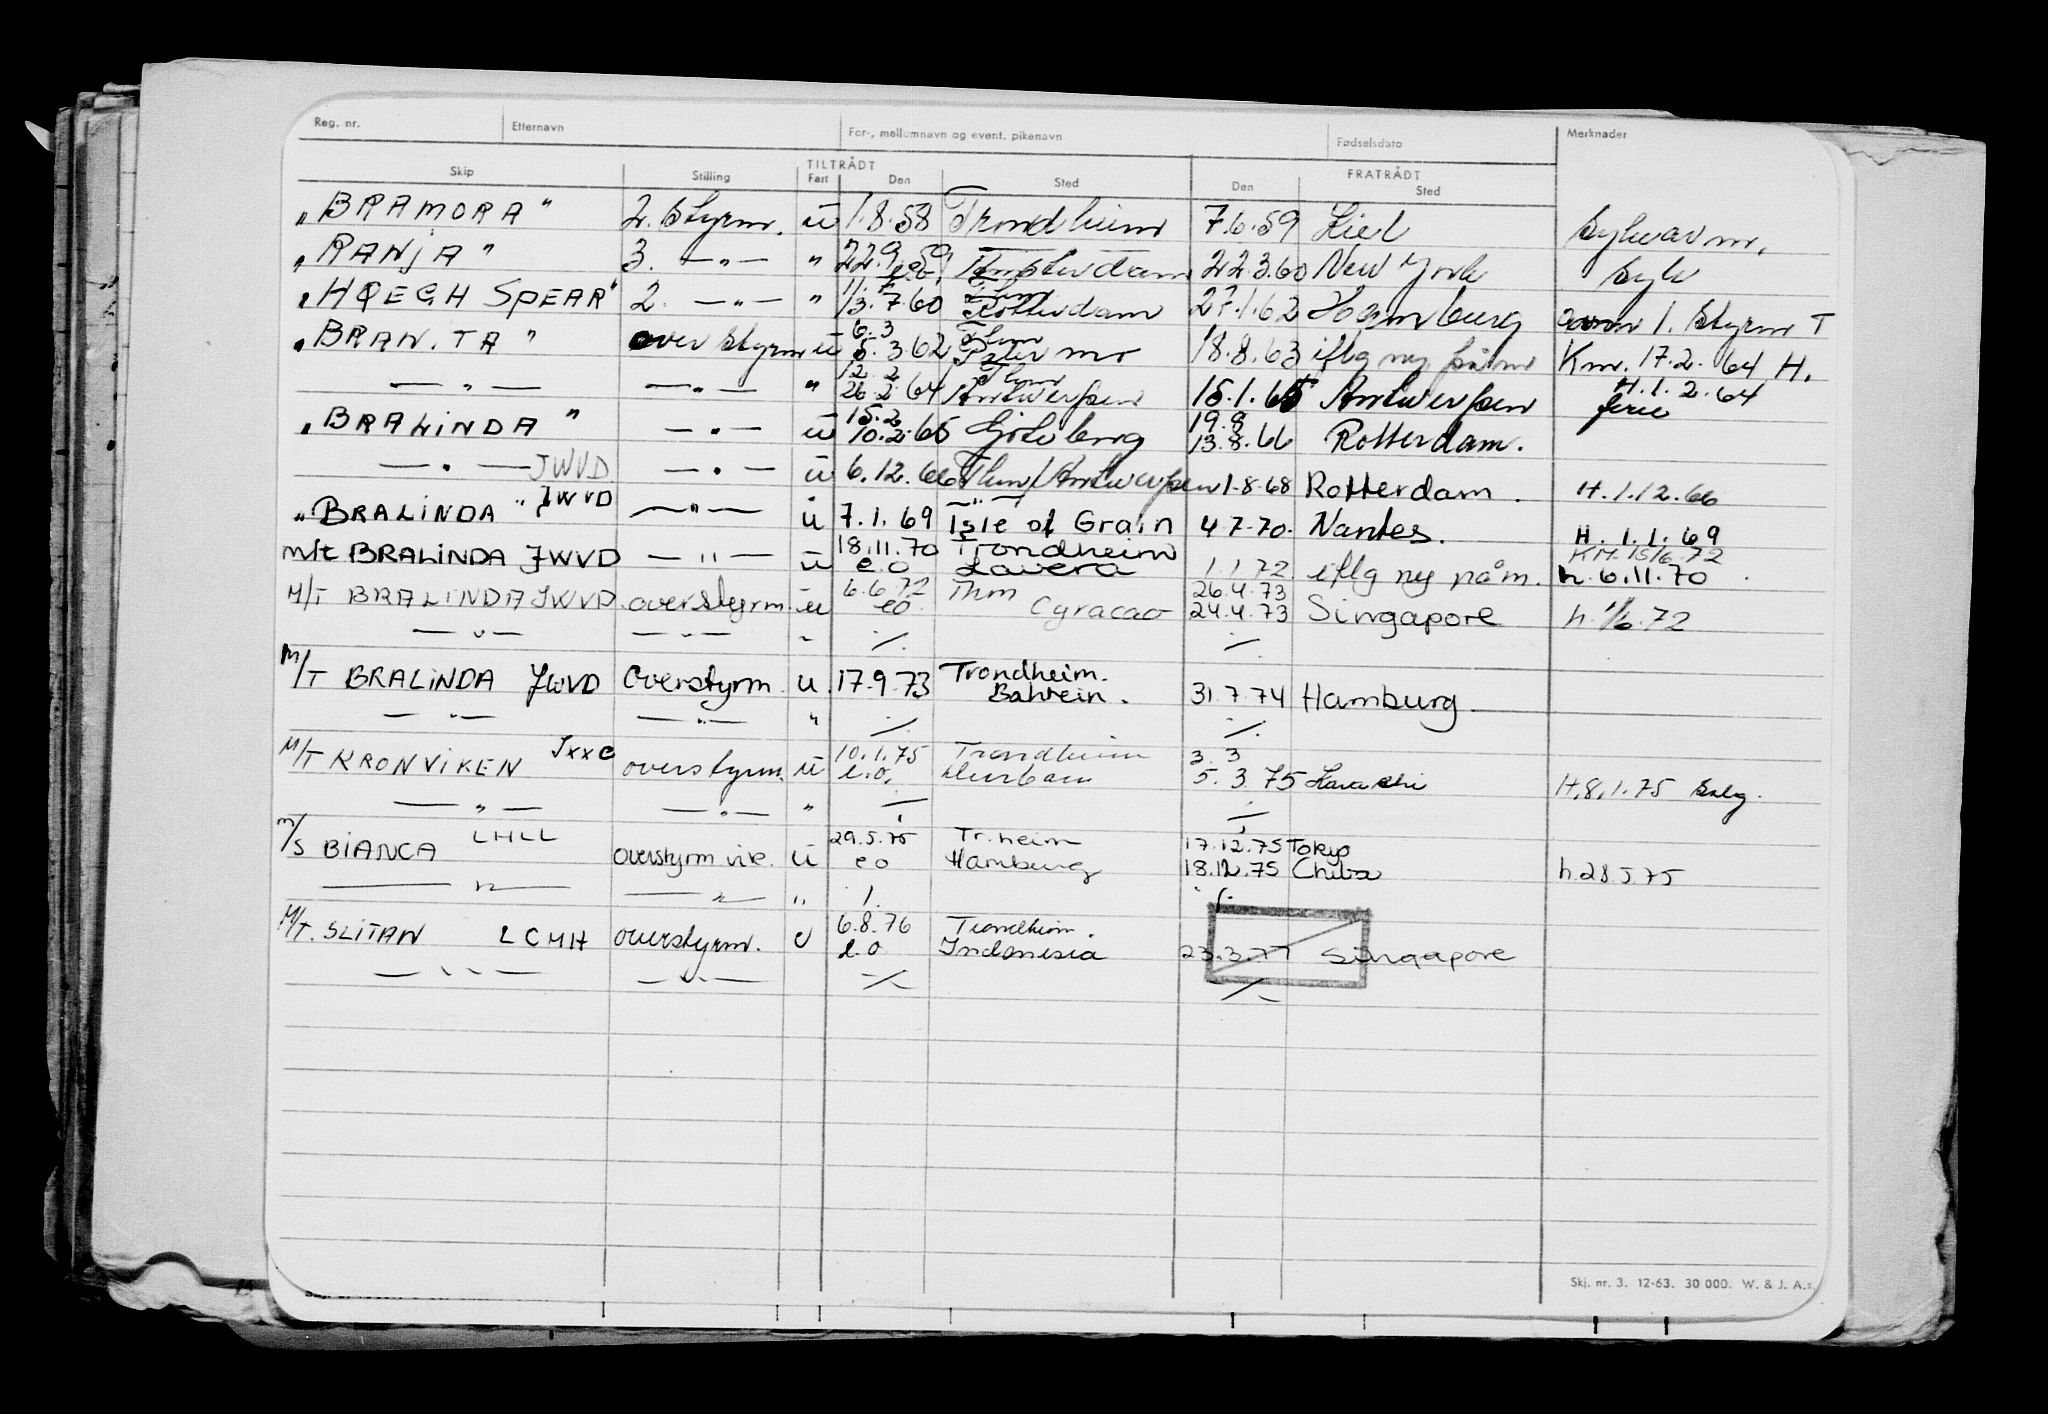 Reg. nr. Etternavn For-, mellomnavn og event. pikenavn Fødselsdato Merknader
TILTRÅDT FRATRÅDT
Skip Stilling Fart Den Sted Den Sted
"BRAMORA" 2. Styrm. u 1.8.58 Trondheim 7.6.59 Kiel Sykvarm.
"RANJA" 3. —"— " 22.9.59 Amsterdam 22.3.60 New York Syk
"HØEGH SPEAR" 2. —"— " 13.7.60 Rotterdam 27.1.62 Hamburg 1. Styrm T
"BRAN.TA" overstyrm u 6.3 5.3.62 Thm 18.8.63 iflg ny påm Km. 17.2.64 H.
—"— —"— " 12.2 26.2.64 Thm Antwerpen 15.1.65 Antwerpen H.1.2.64 ferie
"BRALINDA" —"— u 15.2 10.2.65 Göteborg 19.8 13.8.66 Rotterdam.
—"— JWVD —"— u 6.12.66 Thm/Antwerpen 1.8.68 Rotterdam. H.1.12.66
"BRALINDA" JWVD —"— u 7.1.69 —"— Isle of Grain 4.7.70. Nantes. H.1.1.69
m/t BRALINDA JWVD —"— u 18.11.70 e.o Trondheim Lavera 1.1.72 iflg ny påm. KM.15/6.72 h.6.11.70.
M/T BRALINDA JWVD. overstyrm. u 6.6.72 eo. Thm Cyracao 26.4.73 24.4.73 Singapore h.1/6.72
—"— —"— " ./. ./.
M/T BRALINDA JWVD Overstyrm. u. 17.9.73 Trondheim. Bahrein. 31.7.74 Hamburg.
—"— —"— " ./. ./.
M/T KRONVIKEN JXXC overstyrm. u 10.1.75 e.o. Trondheim Durban 3.3 5.3.75 Karachi H.8.1.75
—"— —"— " ./. ./.
m/s BIANCA LHLL overstyrm vik. u 29.5.75 eo Tr.heim Hamburg 17.12.75 Tokyo 18.12.75 Chiba h.28.5.75
—"— —"— " /. ./.
M/T. SLITAN LCMH overstyrm. U 6.8.76 e.o Trondheim. Indonesia 23.3.77 Singapore
—"— —"— ./. ./.
Skj. nr. 3. 12-63. 30 000. W. & J. A.s.